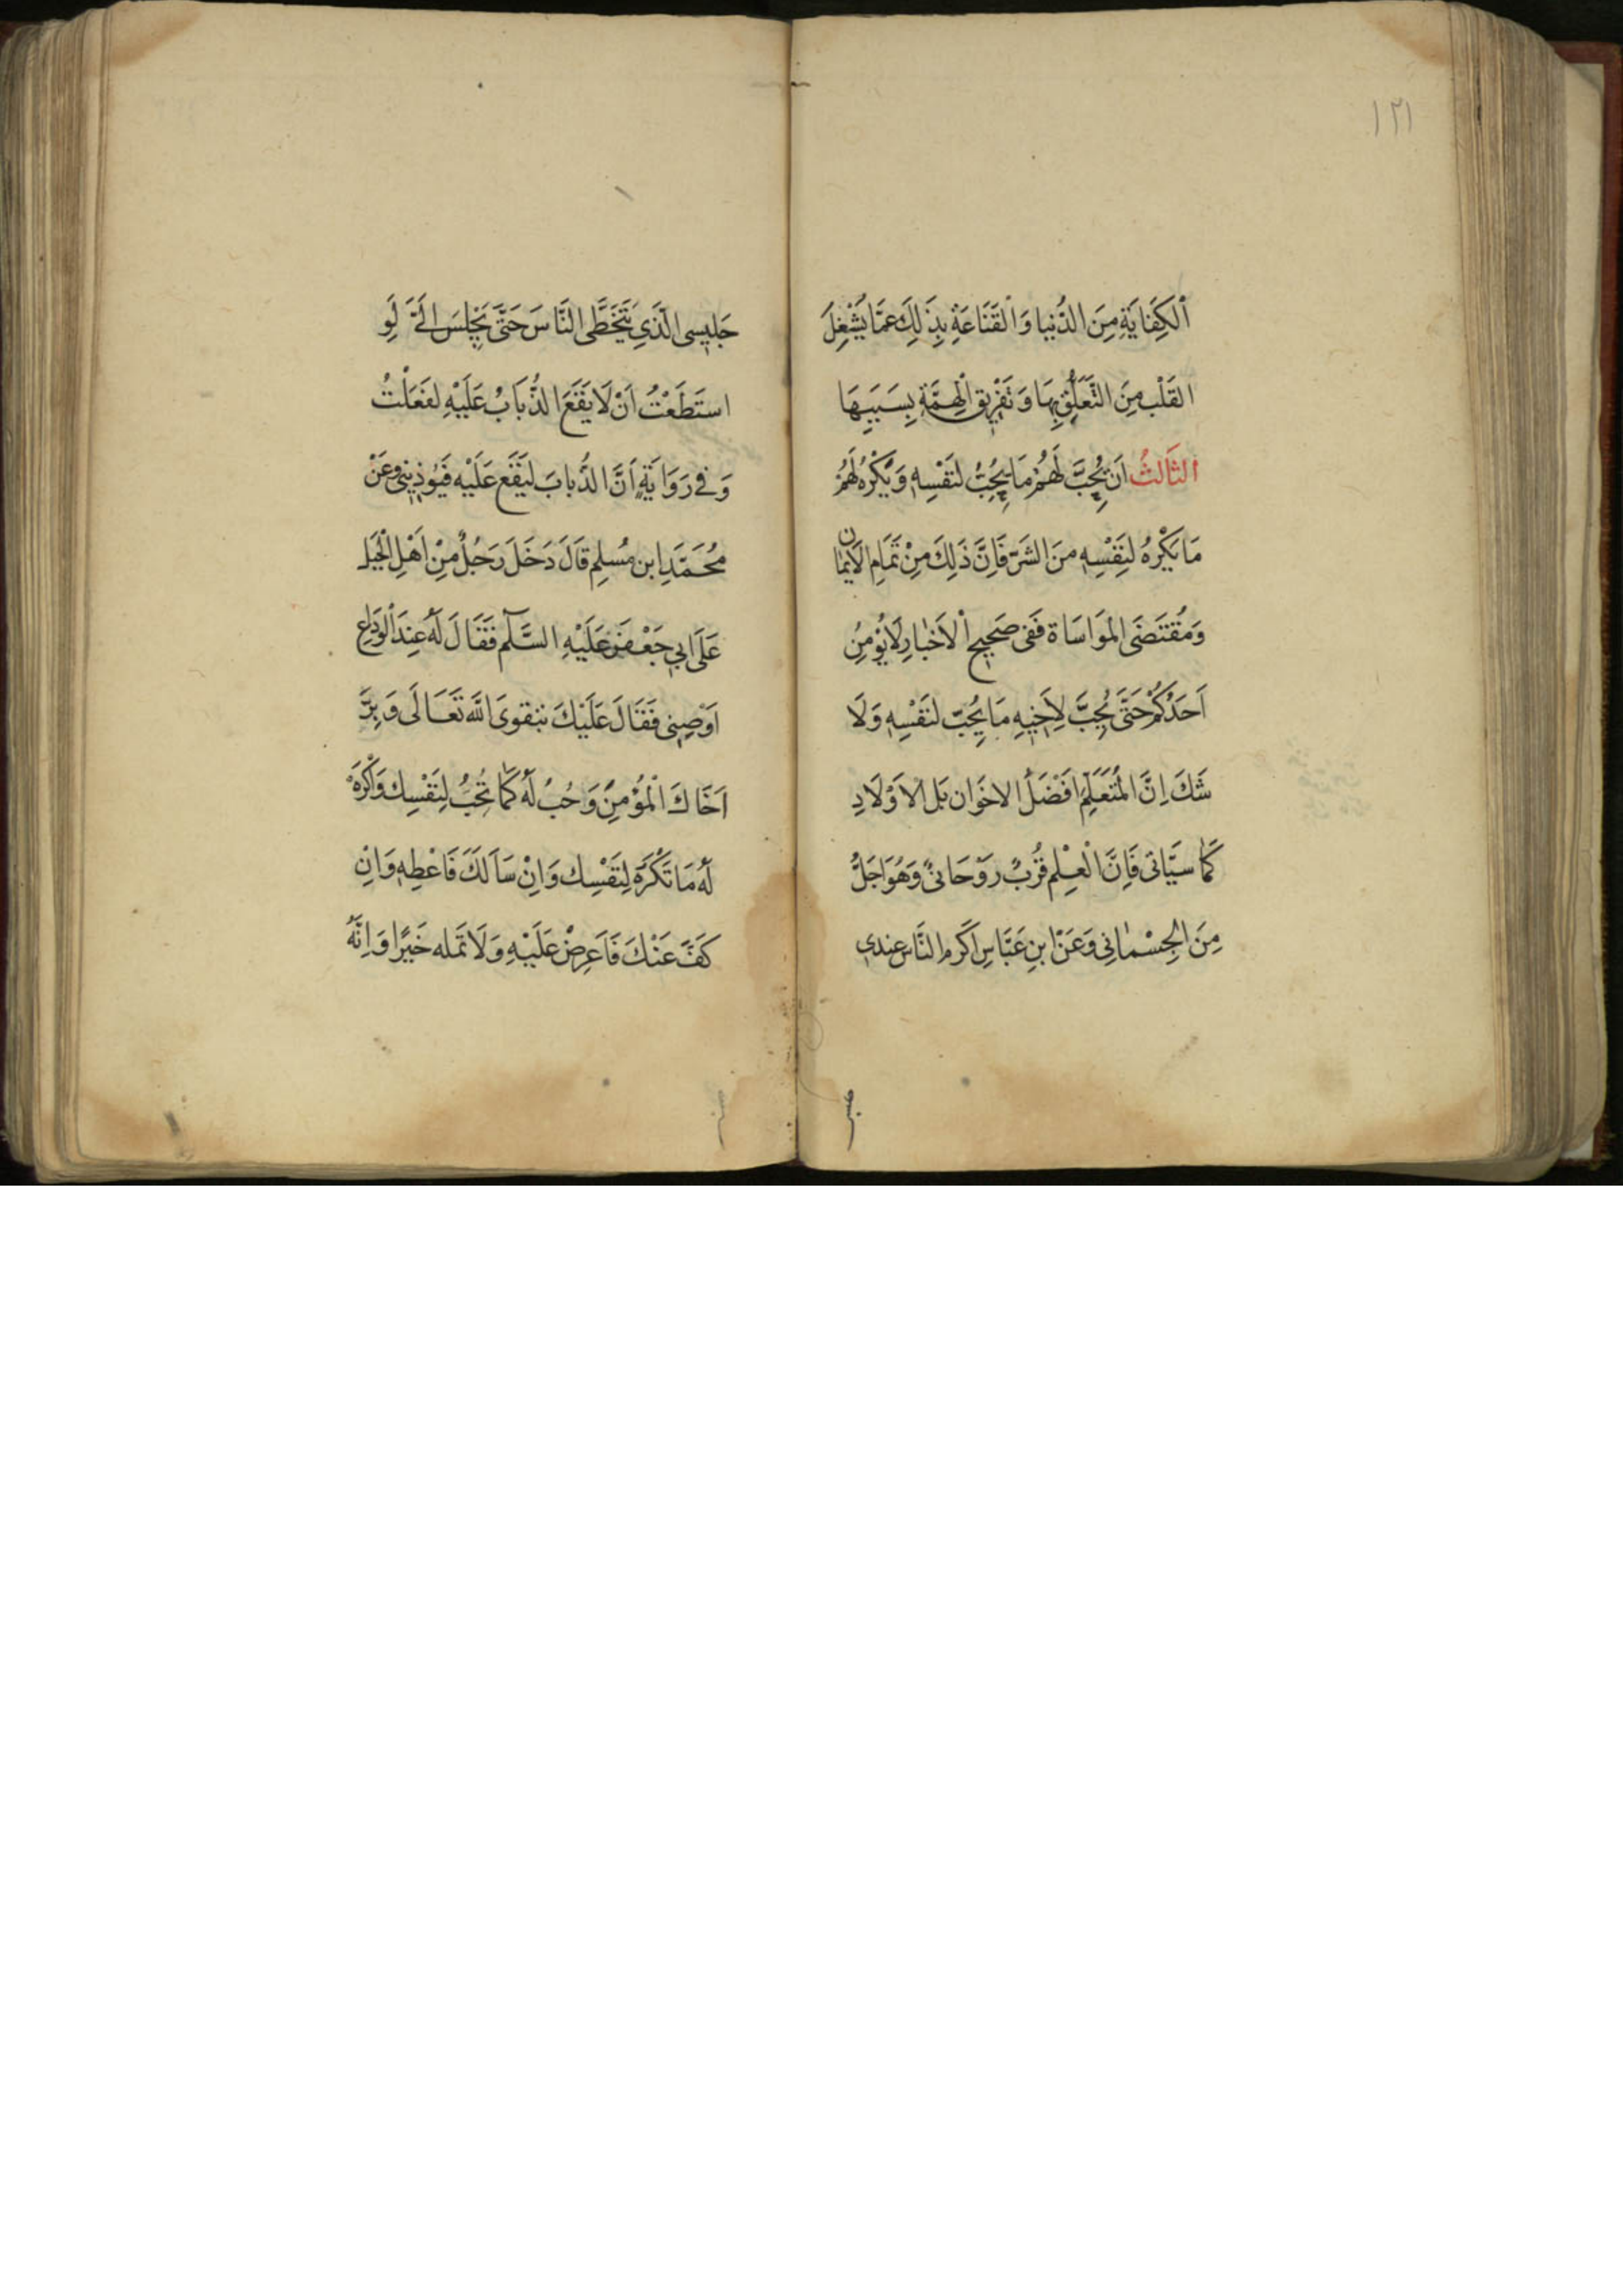 ١٢١
اَلْكِفَايَةِ مِنَ الدُّنيا وَالْقَنَاعَةِ بِذَلِكَ عَمَّا يُشْغِلَ
القَلْب مِنَ التَّعَلُّقِ بِهَا وَتَفْرِيقِ الْهِمَّةِ بِسَبَبِهَا
الثَالثُ اَن يُحِبَّ لَهُمْ مَا يُحِبُّ لنَفْسِهِ وَيَكْرُهُ لَهُمْ
مَا يَكْرهُ لنِفْسِهِ منَ الشَرّ فَاِنَّ ذَلِكَ مِنْ تَمَامِ الاَيمان
وَمُقْتَضَى المَوَاسَاة فَفى صَحِيحِ الْاَخْبارِ لَا يُؤْمِنُ
اَحَدُكُمْ حَتَّى يُحِبَّ لِاَخِيهِ مَا يُحِبّ لنَفْسِهِ وَلَا
شَكَ اِنَّ المُتَعَلِّمَ اَفْضَلُ الاخَوَان بَل الاَوْلَادِ
كَمَا سيَّاتى فَاِنَّ الْعِلْم قُرْبٌ رَوْحَانىٌ وَهُوَ اجَلُّ
مِنَ الجِسْمانِى وَعَنْ ابنِ عَبَّاسِ اكَرم النَّاس عندى
جَلِيسِى الَّذِى يَتَخَطَّى النَّاسَ حَتَّى يَجْلِسَ اِلَىَّ لَو
استَطَعْتُ اَنْ لَا يَقَعَ الذُّبَابُ عَلَيْهِ لفَعَلْتُ
وَ فى رَوَايَةٍ اَنَّ الذُّبابَ ليَقَع عَلَيْهِ فَيُوذِينِى وعَنْ
مُحَمَّدِ ابن مُسلِم قَالَ دَخَلَ رَجُلٌ مِنْ اَهْلِ الْجَبَل
عَلَى ابِى جَعْفَر عَلَيْهِ السَّلَم فَقَالَ لَهُ عِنْدَ الْوَدَاعِ
اَوْصِنِى فَقَالَ عَلَيْكَ بتقوىَ اللَّه تَعَالَى وَبِرَّ
اَخَاكَ الْمُؤْمِنِ وَحُبُ لَهُ كَمَا تُحِبُّ لِنَفْسِك وَاكْرَهْ
لَهُ مَا تَكْرَهُ لِنَفْسِك وَاِنْ سَاَلَكَ فَاعْطِهِ وَاِنِ
كَفَّ عَنْكَ فَاَعرِضْ عَلَيْهِ وَلَا تَمله خَيرًا وَاِنَّهُ